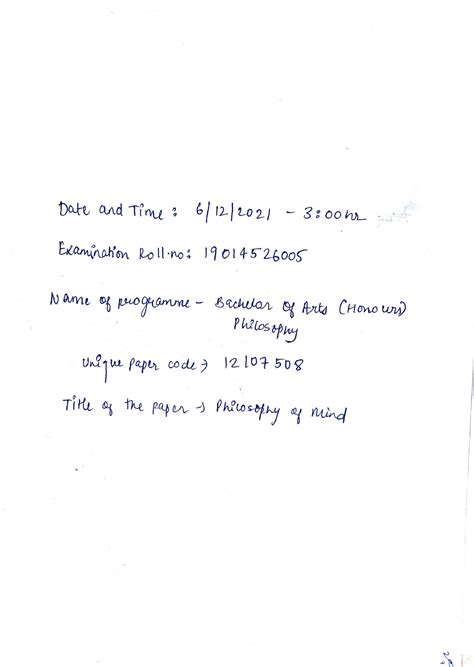 Date and Time : 6/12/2021 - 3:00 hr
Examination Roll.no: 19014526005
Name of programme - Bachelor of Arts (Honours)
Philosophy
Unique paper code → 12107508
Title of the paper → Philosophy of Mind